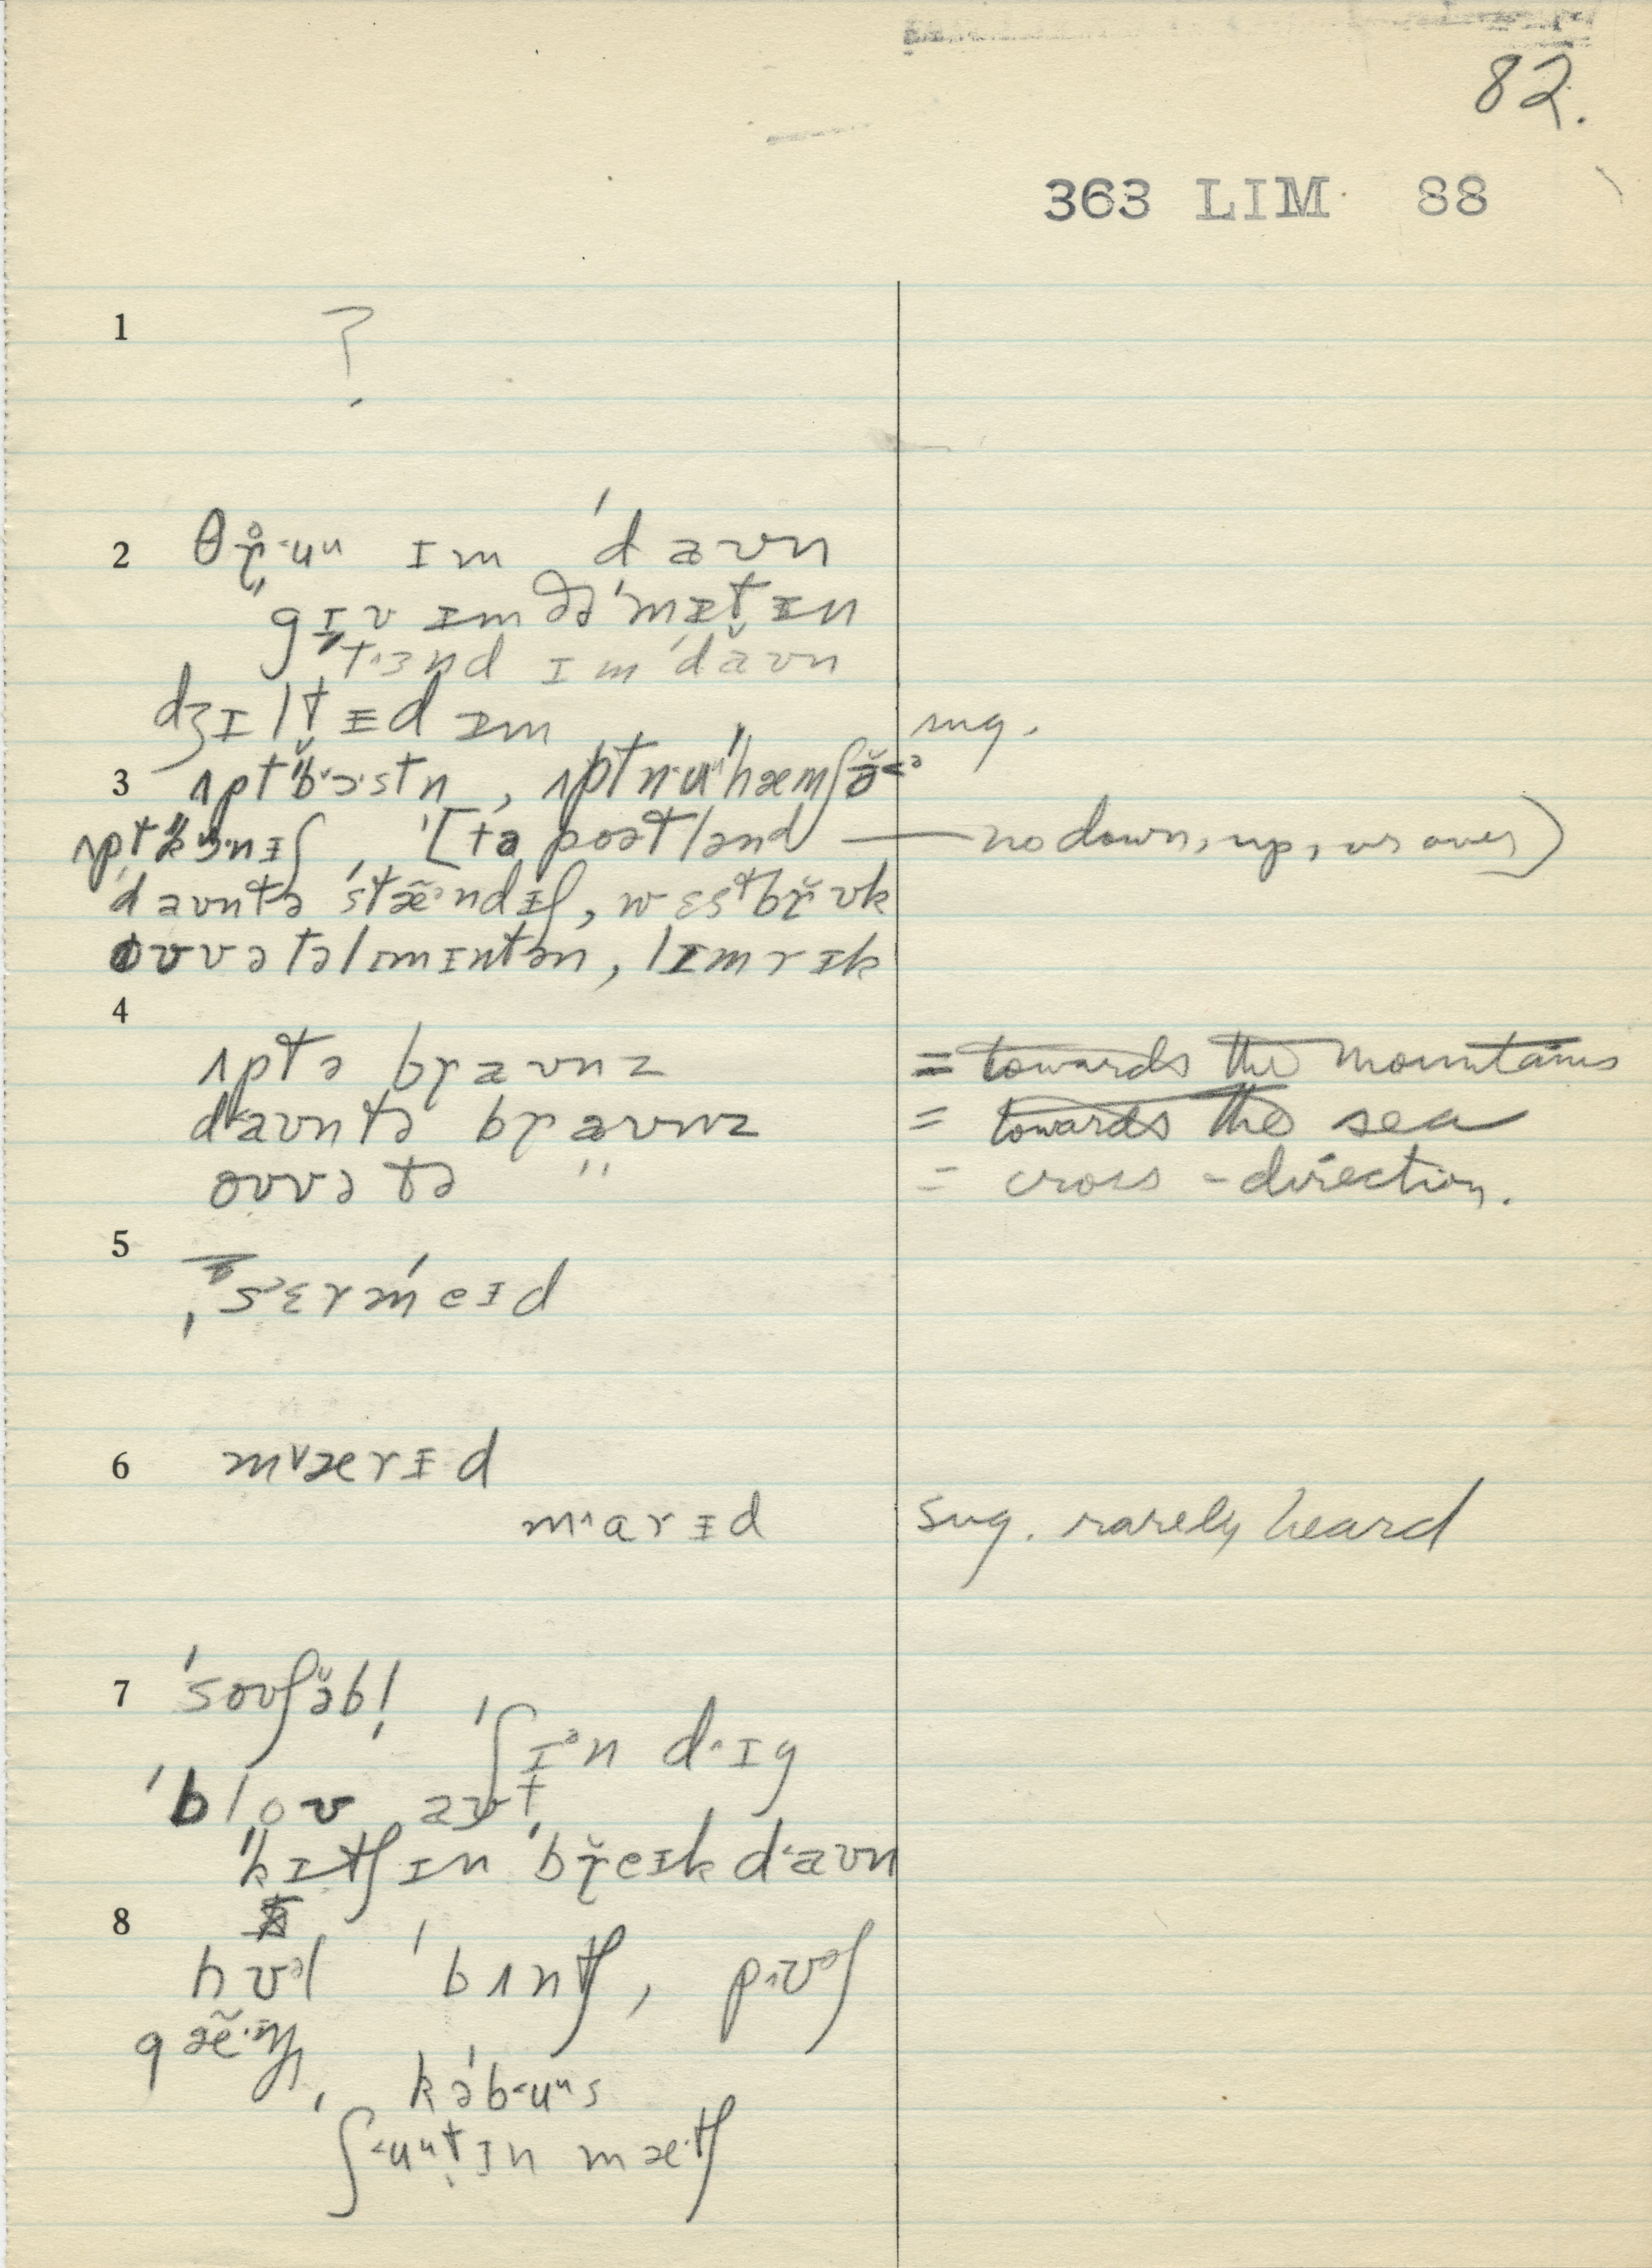 82.
363 LIM 88
1 ?
2 θr̥ˑuᵘ ɪm ˈdaʊn
"gɪv ɪm ðə ˈmɪtɪn
tɜnd ɪm ˈdaʊn
dʒɪltɪd ɪm sug.
3 ʌptˈbɔˑstn, ʌptnˑuᵘˈhæmʃə
ʌptˈkɜˑnɪʃ, [tə poətlənd — no down, up, or over)
ˈdaʊntə ˈstæ̃ˑndɪʃ, wɛstbrʊk
oʊvə təlɪmɪntən, lɪmrɪk
4
ʌptə braʊnz = towards the mountains
daʊntə braʊnz = towards the sea
oʊvə tə " = cross-direction.
5 ˌsɛrmˈeɪd
6 mˈærɪd
mˑarɪd sug. rarely heard
7 ˈsoʊʃəb!
ˈʃɪᵊn dˑɪg
ˈbloʊ aʊt
"kɪtʃɪn ˈbreɪkdˑaʊn
8
hʊᵊl ˈbʌntʃ, pˑʊᵊʃ
gæ̃ˑŋ,
kəˈbˑuᵘs
ˈʃˑuᵘtɪn mæˑtʃ